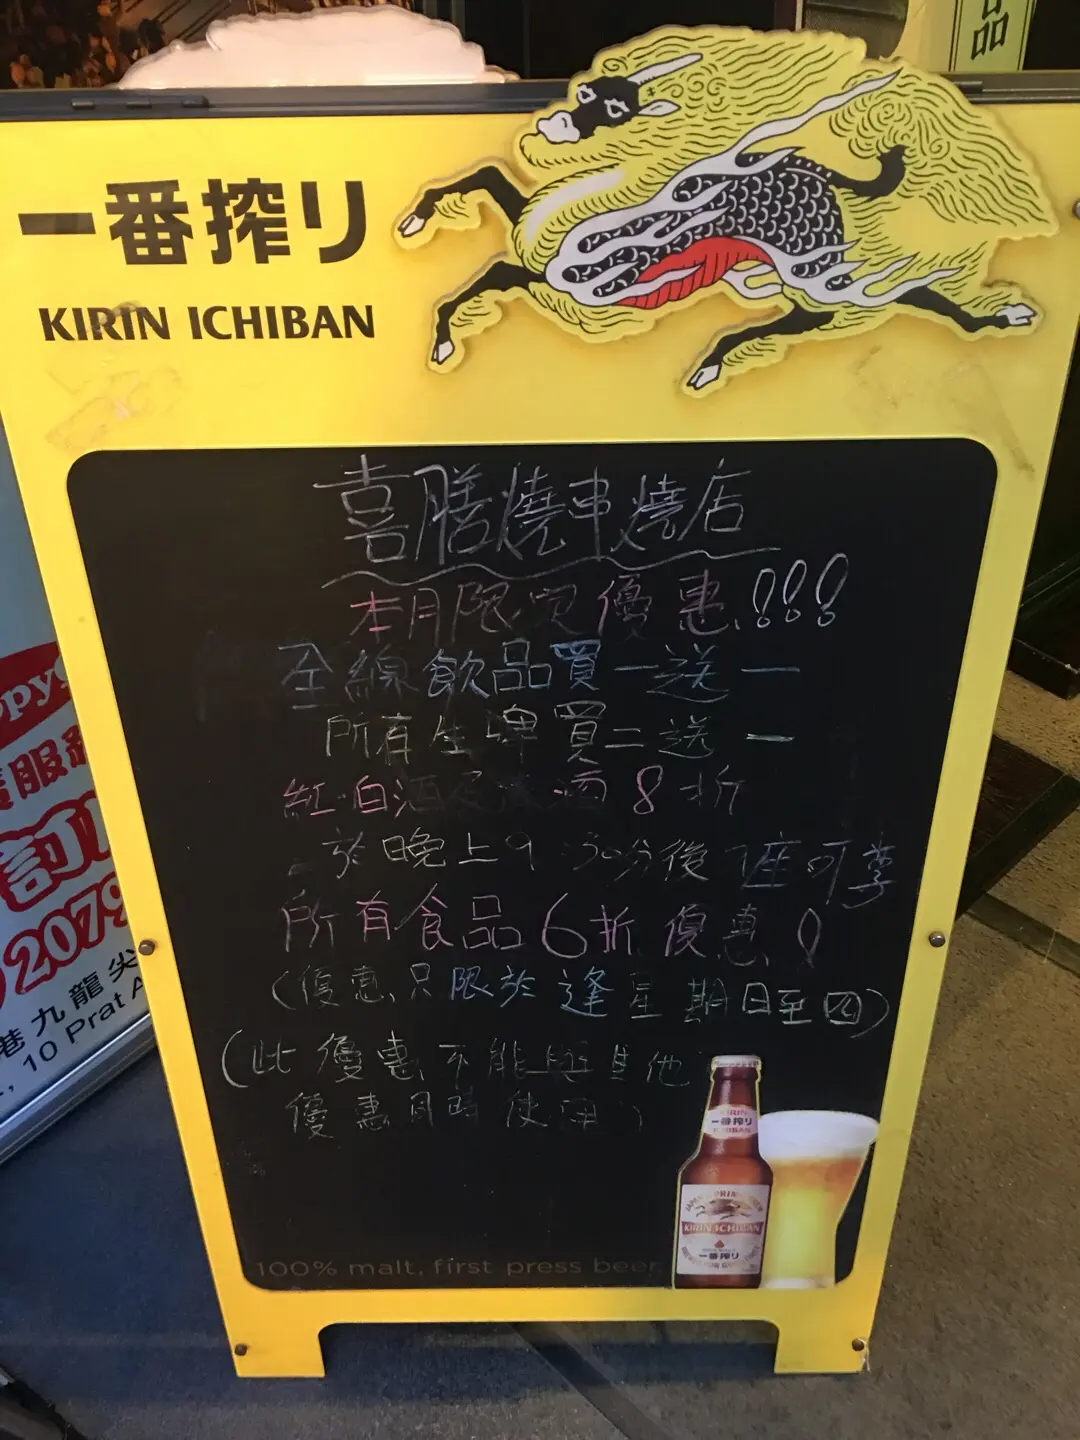 品
一番搾り
KIRIN ICHIBAN
喜膳燒串燒店
本月限定優惠!!!
全線飲品買一送一
所有生啤買二送一
紅白酒及清酒8折
於晚上9:30分後 座可享
所有食品6折優惠!
(優惠只限於逢星期日至四)
(此優惠不能與其他
優惠同時使用)
KIRIN
一番搾り
ICHIBAN
KIRIN ICHIBAN
一番搾り
100% malt, first press beer.
服
訂
2079
港九龍尖
10 Prat